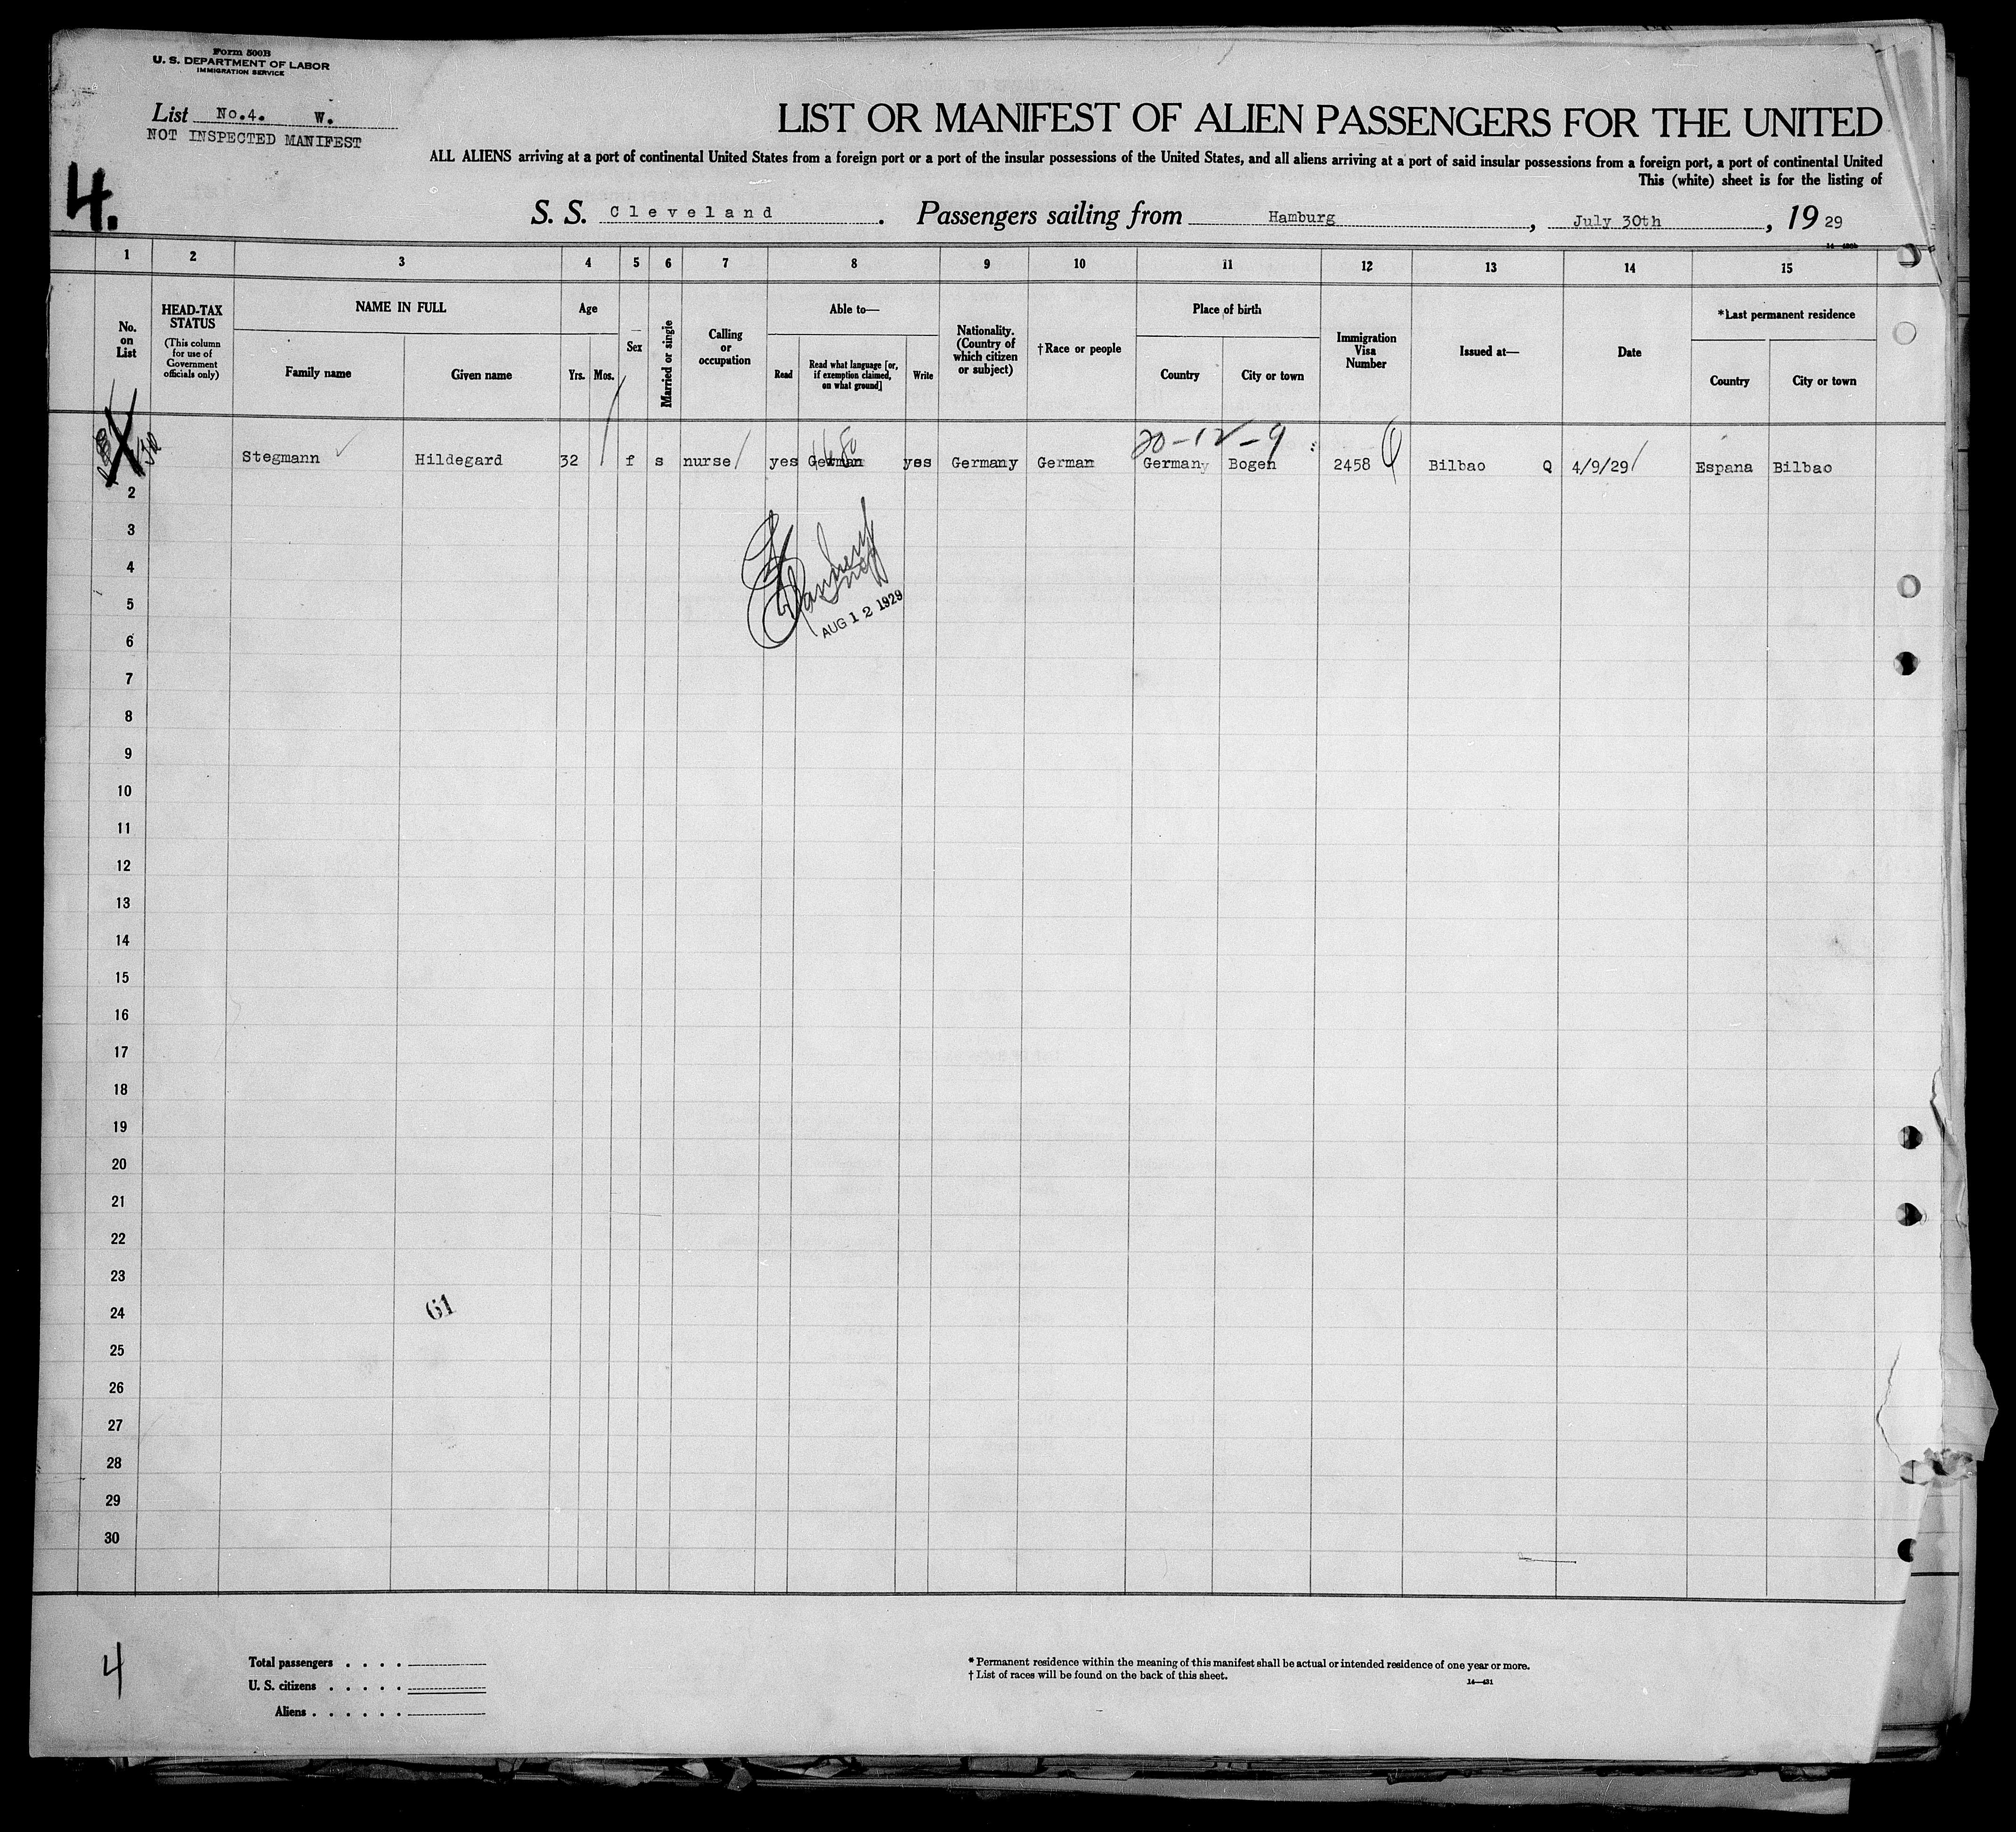 Form 500B
U. S. DEPARTMENT OF LABOR
IMMIGRATION SERVICE
List No.4. W.
NOT INSPECTED MANIFEST
4.
LIST OR MANIFEST OF ALIEN PASSENGERS FOR THE UNITED
ALL ALIENS arriving at a port of continental United States from a foreign port or a port of the insular possessions of the United States, and all aliens arriving at a port of said insular possessions from a foreign port, a port of continental United
This (white) sheet is for the listing of
S. S. Cleveland . Passengers sailing from Hamburg , July 30th , 19 29
1 2 3 4 5 6 7 8 9 10 11 12 13 14 15
No. on List
HEAD-TAX STATUS
(This column for use of Government officials only)
NAME IN FULL
Family name
Given name
Age
Yrs. Mos.
Sex
Married or single
Calling or occupation
Able to—
Read
Read what language [or, if exemption claimed, on what ground]
Write
Nationality. (Country of which citizen or subject)
†Race or people
Place of birth
Country
City or town
Immigration Visa Number
Issued at—
Date
*Last permanent residence
Country
City or town
20-12-9
Stegmann Hildegard 32 f s nurse yes German yes Germany German Germany Bogen 2458 Bilbao Q 4/9/29 Espana Bilbao
2
3
4
5
AUG 12 1929
6
7
8
9
10
11
12
13
14
15
16
17
18
19
20
21
22
23
24
61
25
26
27
28
29
30
4
Total passengers . . . .
U. S. citizens . . . . .
Aliens . . . . . .
* Permanent residence within the meaning of this manifest shall be actual or intended residence of one year or more.
† List of races will be found on the back of this sheet.
14—431